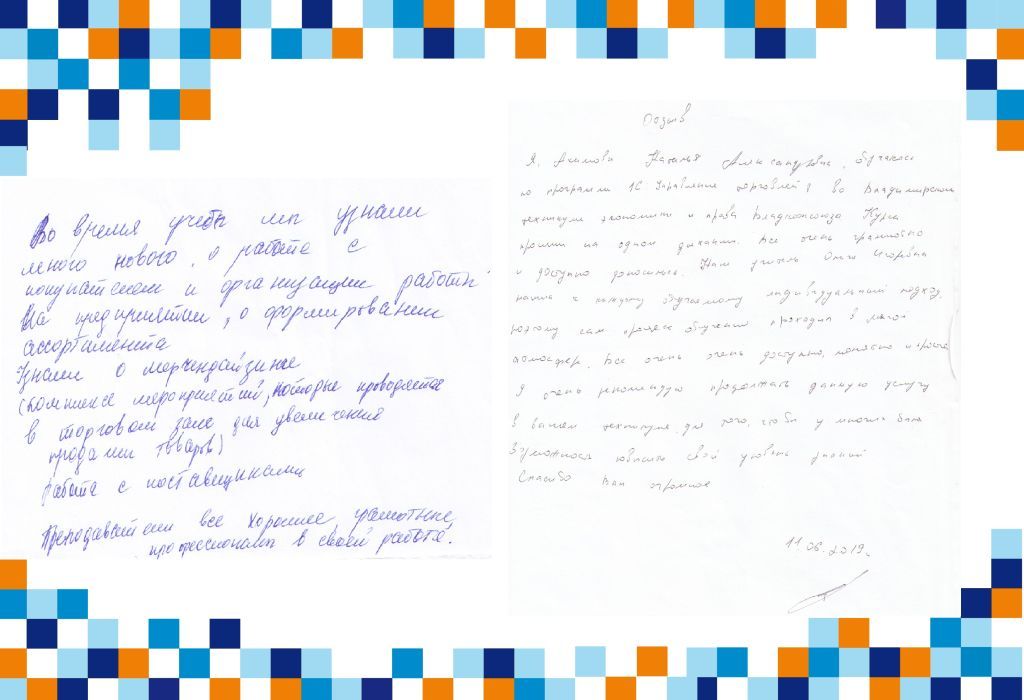 Во время учебы мы узнали
много нового, о работе с
покупателем и организации работы
На предприятии, о формировании
ассортимента
Узнали о мерчендайзинге
(комплексе мероприятий, которые проводятся
в торговом зале для увеличения
продажи товаров)
Работа с поставщиками
Преподаватели все хорошие, грамотные,
профессионалы в своей работе.
Отзыв
Я, Акимова Наталья Александровна, обучалась
по программе 1С Управление торговлей в во Владимирском
техникуме экономики и права Владкоопсоюза Курса
прошли на одном дыхании. Все очень грамотно
и доступно доносилось. Наш учитель Ольга Игоревна
нашла к каждому обучаемому индивидуальный подход,
поэтому сам процесс обучения проходил в легкой
атмосфере. Все очень очень доступно, понятно и просто
Я очень рекомендую продолжать данную услугу
в вашем техникуме для того, чтобы у многих была
возможность повысить свой уровень знаний
Спасибо Вам огромное
11.06.2019г.